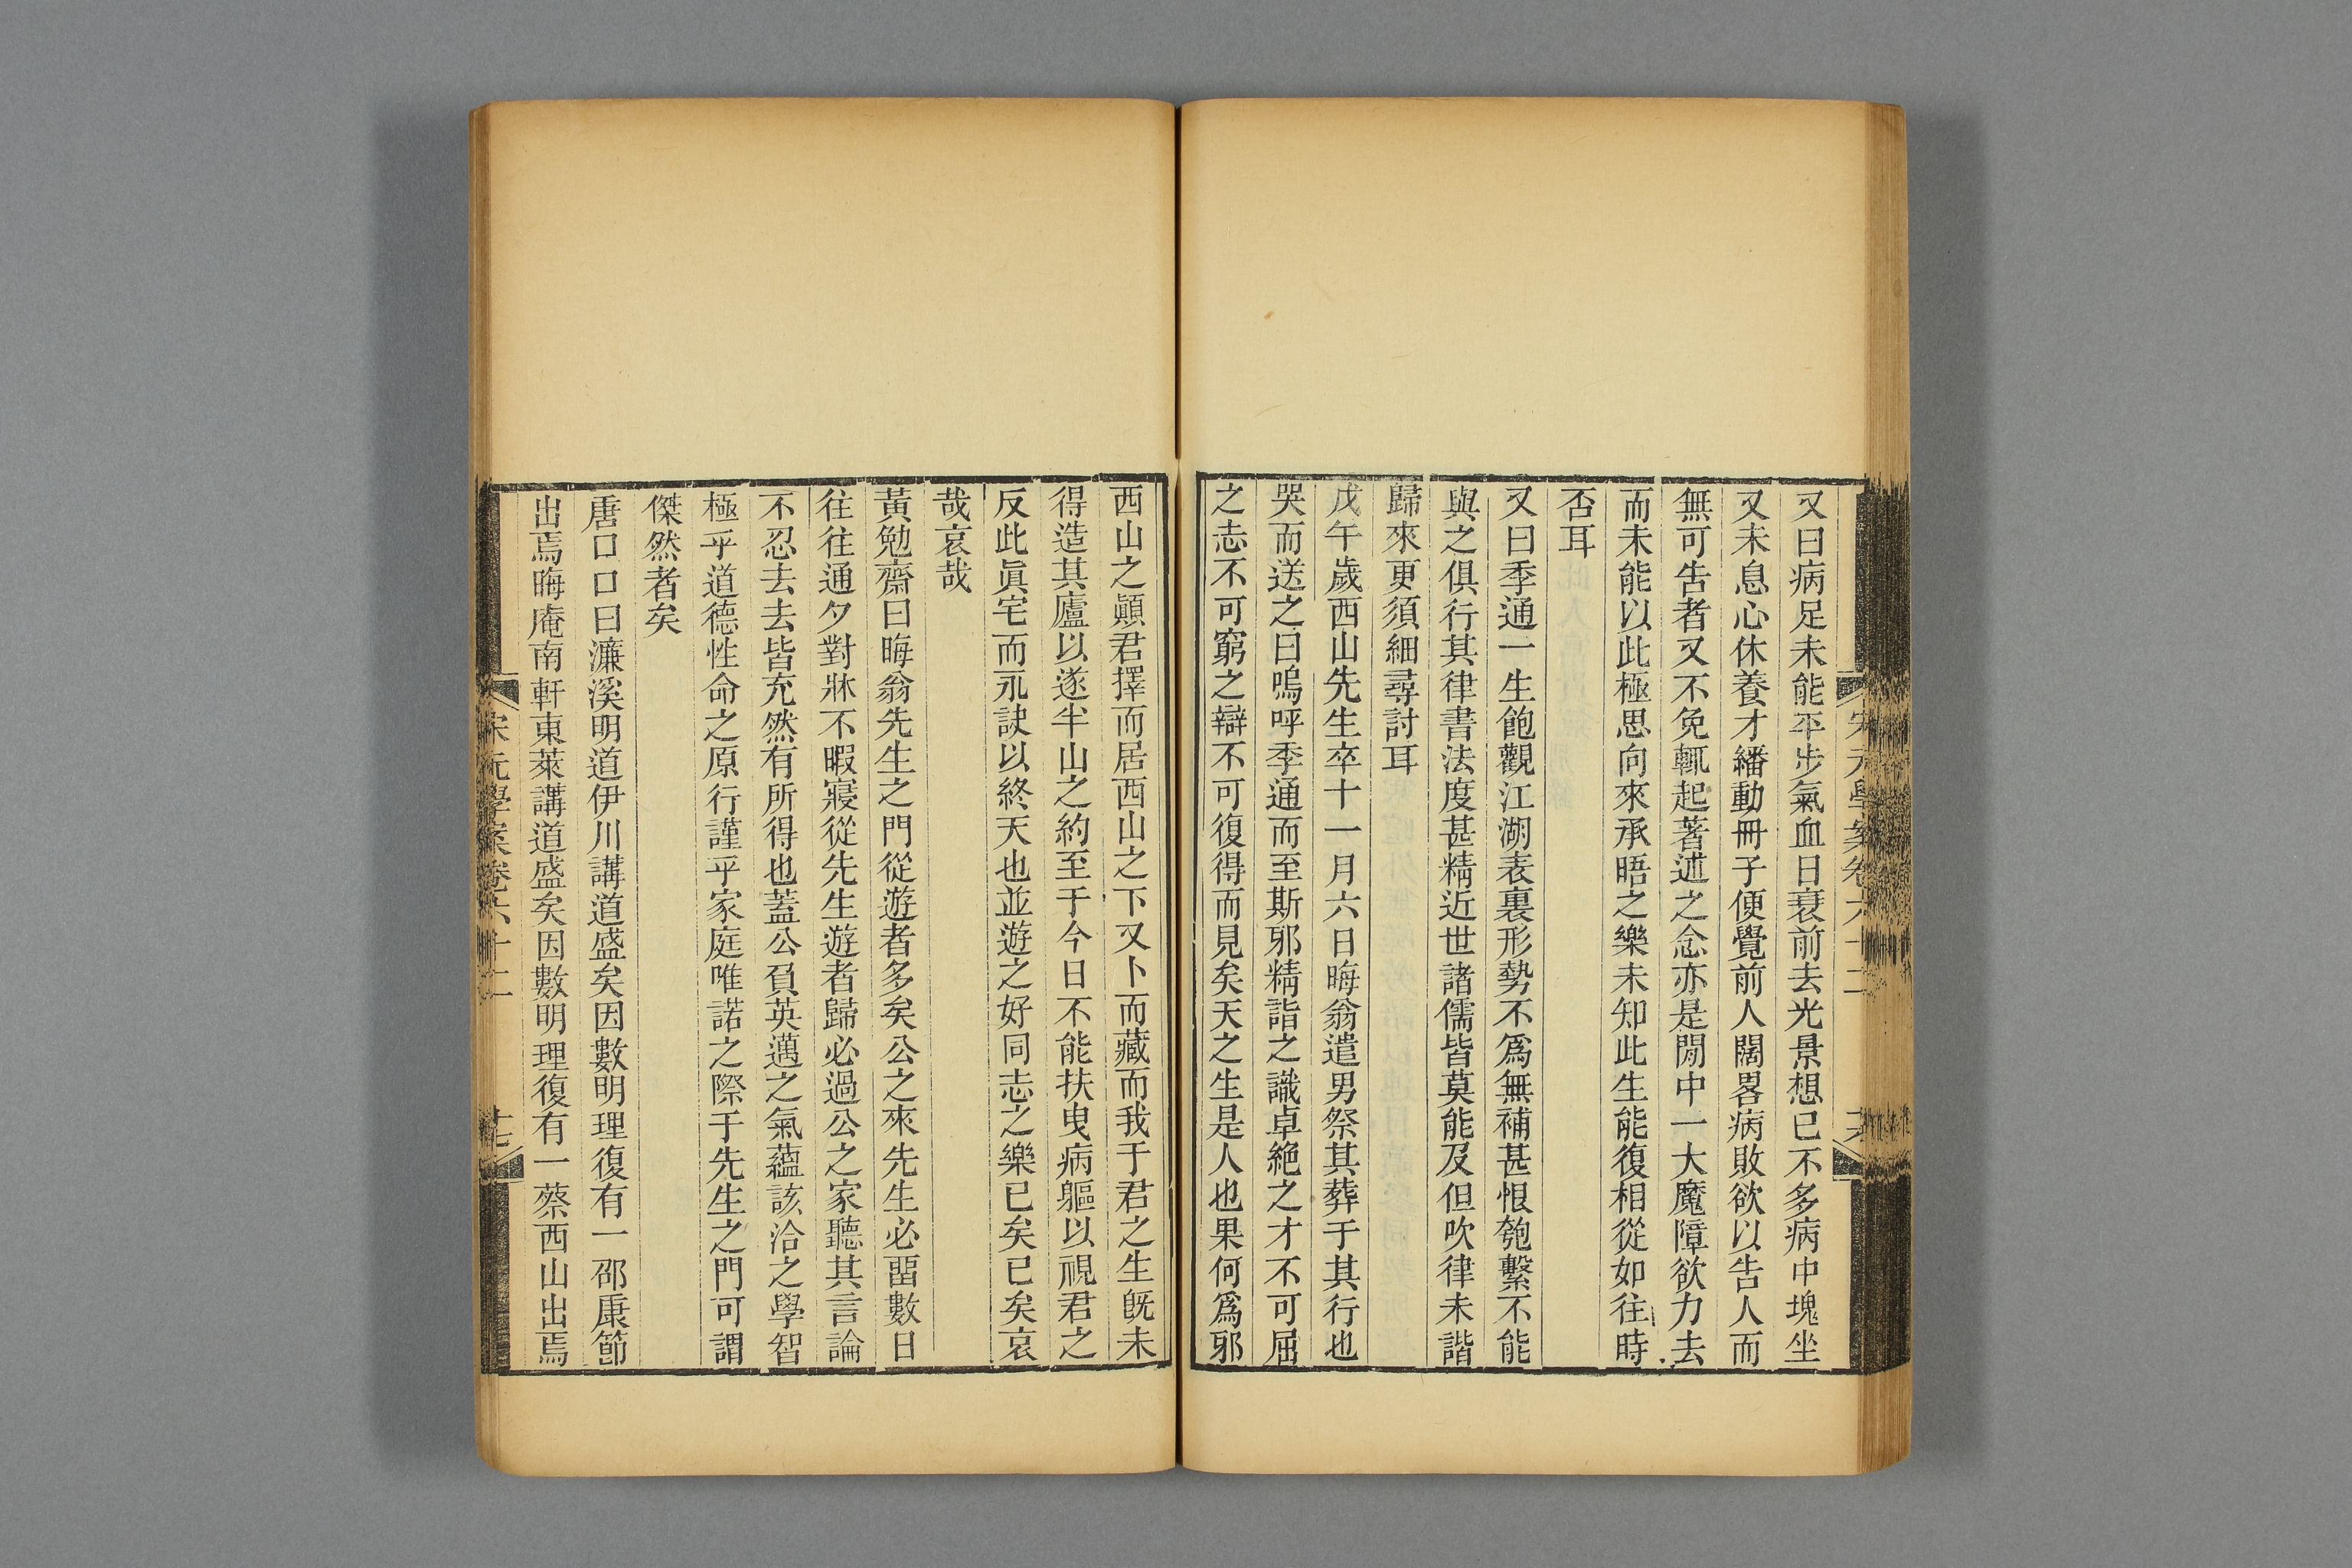 宋元學案卷六十二
十六
又曰病足未能平步氣血日衰前去光景想已不多病中塊坐
又未息心休養才繙動冊子便覺前人闊畧病敗欲以告人而
無可告者又不免輒起著述之念亦是閒中一大魔障欲力去
而未能以此極思向來承晤之樂未知此生能復相從如往時
否耳
又曰季通一生飽觀江湖表裏形勢不爲無補甚恨匏繫不能
與之俱行其律書法度甚精近世諸儒皆莫能及但吹律未諧
歸來更須細尋討耳
戊午歲西山先生卒十一月六日晦翁遣男祭其葬于其行也
哭而送之曰嗚呼季通而至斯邪精詣之識卓絶之才不可屈
之志不可窮之辯不可復得而見矣天之生是人也果何爲邪
西山之顚君擇而居西山之下又卜而藏而我于君之生旣未
得造其廬以遂半山之約至于今日不能扶曳病軀以視君之
反此眞宅而永訣以終天也並遊之好同志之樂已矣已矣哀
哉哀哉
黃勉齋曰晦翁先生之門從遊者多矣公之來先生必畱數日
往往通夕對牀不暇寢從先生遊者歸必過公之家聽其言論
不忍去去皆充然有所得也蓋公負英邁之氣蘊該洽之學智
極乎道德性命之原行謹乎家庭唯諾之際于先生之門可謂
傑然者矣
唐口口曰濂溪明道伊川講道盛矣因數明理復有一邵康節
出焉晦庵南軒東萊講道盛矣因數明理復有一蔡西山出焉
宋元學案卷六十二
十七